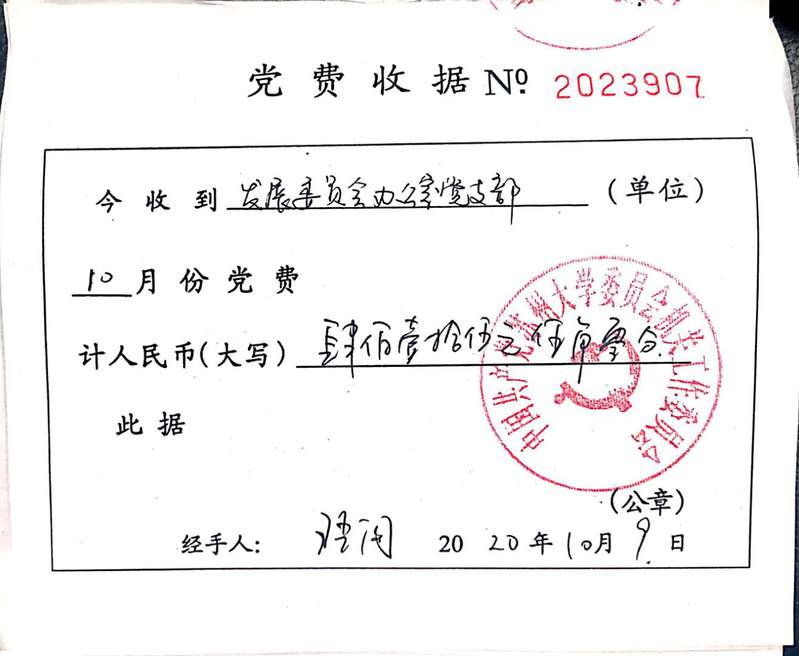 党费收据 Nº 2023907
今收到 发展委员会办公室党支部 (单位)
10月份党费
计人民币(大写) 肆佰壹拾伍元伍角零分
此据
中国共产党苏州大学委员会机关工作委员会
(公章)
经手人: 2020年10月9日